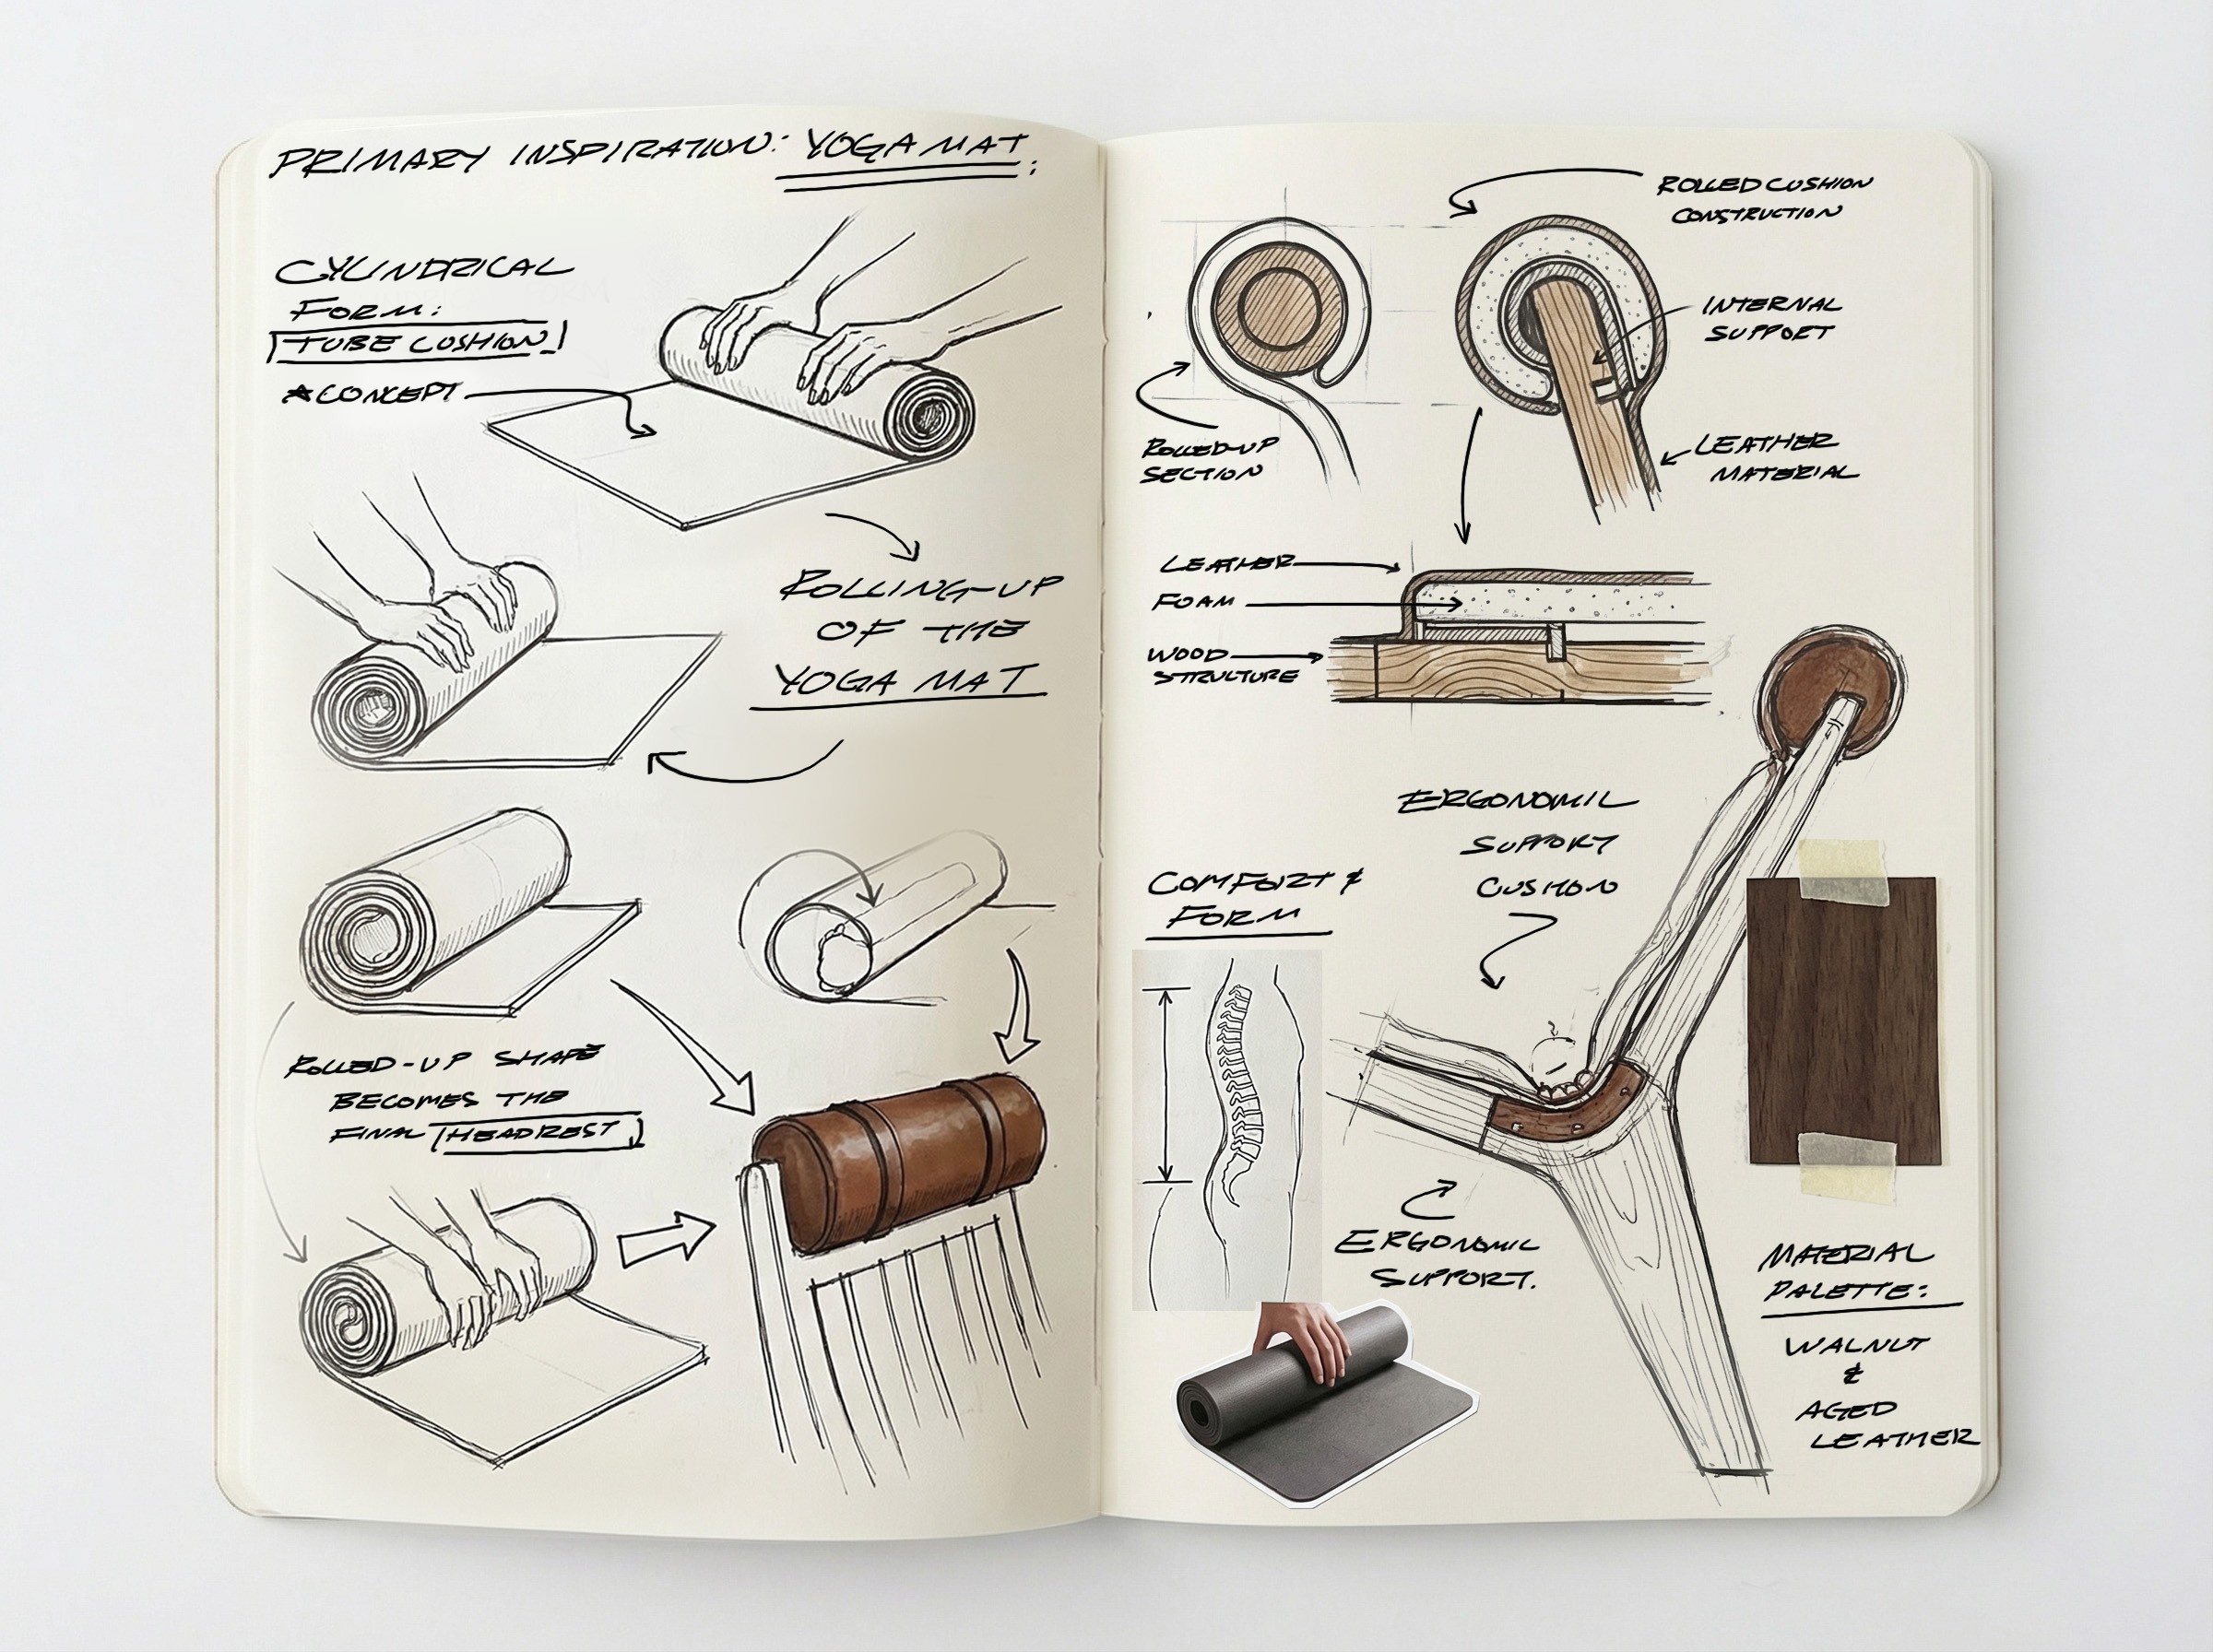 PRIMARY INSPIRATION: YOGA MAT;
CYLINDRICAL
FORM:
TUBE CUSHION
*CONCEPT
ROLLING-UP
OF THE
YOGA MAT
ROLLED-UP SHAPE
BECOMES THE
FINAL HEADREST
ROLLED CUSHION
CONSTRUCTION
INTERNAL
SUPPORT
ROLLED-UP
SECTION
LEATHER
MATERIAL
LEATHER
FOAM
WOOD
STRUCTURE
ERGONOMIC
SUPPORT
CUSHION
COMFORT &
FORM
ERGONOMIC
SUPPORT.
MATERIAL
PALETTE:
WALNUT
&
AGED
LEATHER